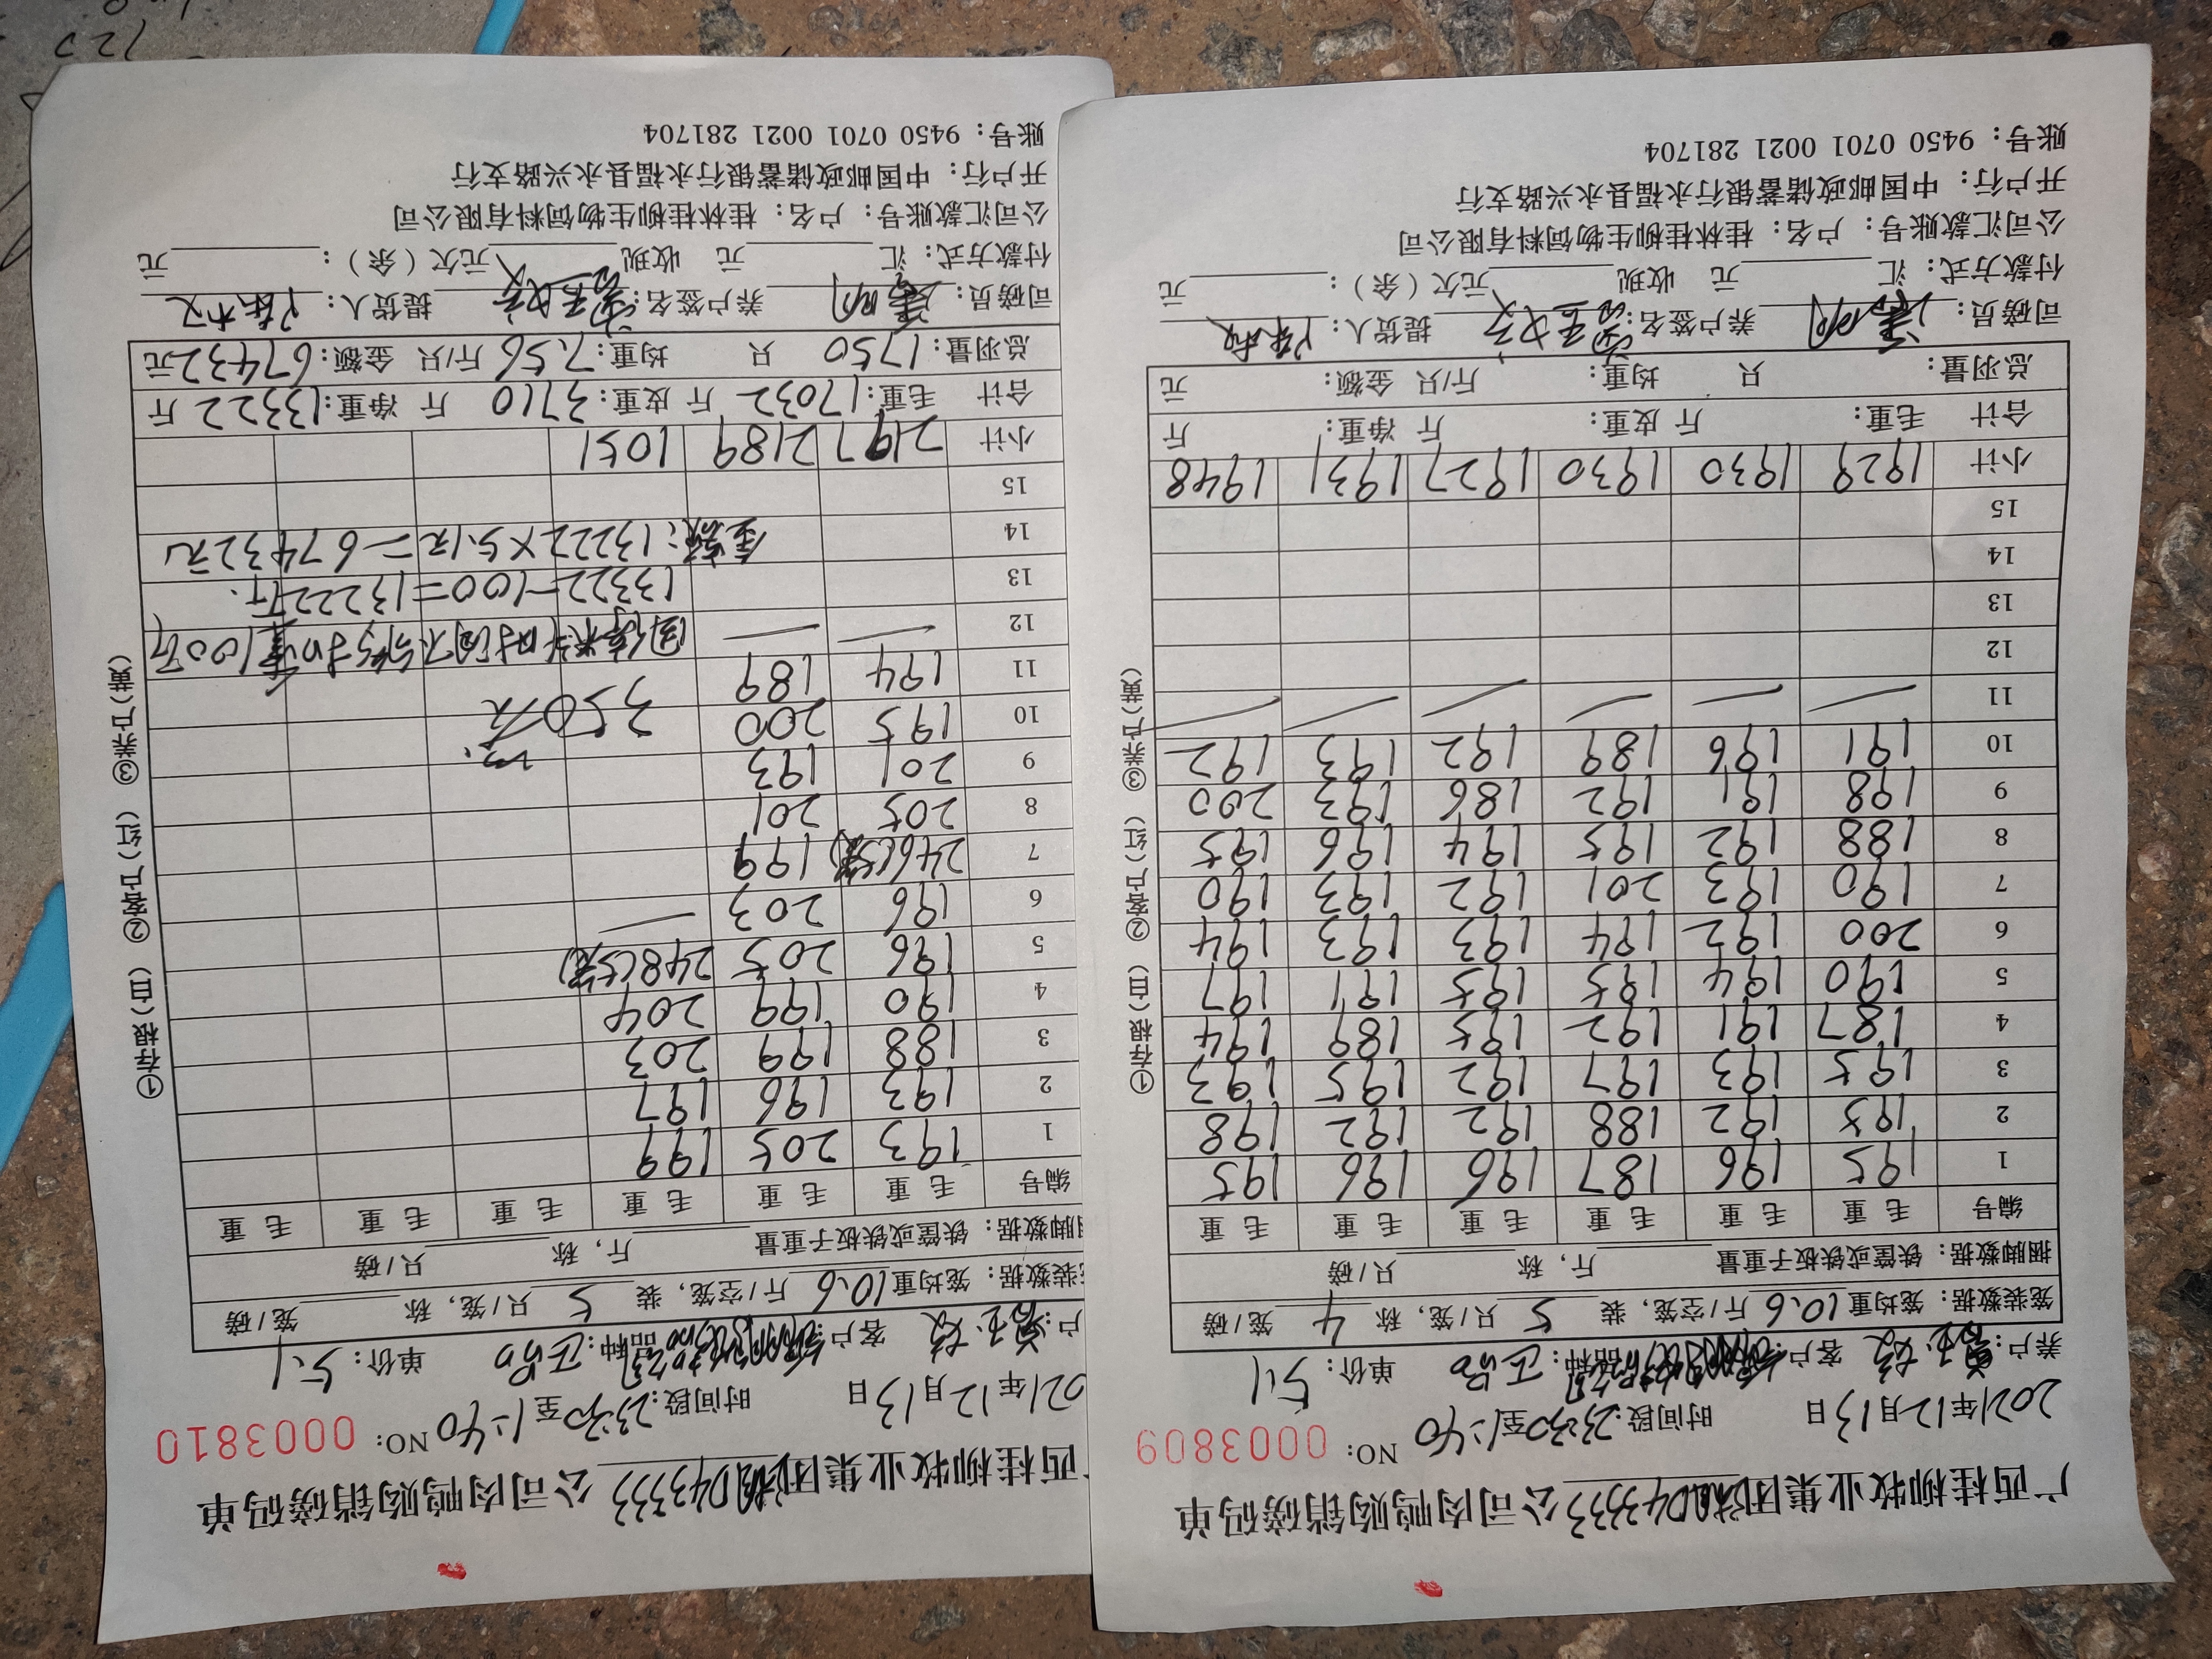 广西桂柳牧业集团 D43333 公司肉鸭购销磅码单
2021年12月13日 时间段:23:30至1:40 NO: 0003809
养户: 客户: 品种: 正品 单价: 5.1
笼装数据: 笼均重 10.6 斤/空笼, 装 5 只/笼, 称 4 笼/磅
捆脚数据: 铁筐或铁板子重量 斤, 称 只/磅
编号 毛重 毛重 毛重 毛重 毛重 毛重
1 195 196 187 196 196 195
2 195 192 188 192 192 198
3 195 193 197 192 195 193
4 187 191 192 195 189 194
5 190 194 195 195 191 197
6 200 192 194 193 193 194
7 190 193 201 192 193 190
8 188 192 195 194 196 195
9 198 191 192 186 193 200
10 191 196 189 192 193 192
11
12
13
14
15
小计 1929 1930 1930 1927 1931 1948
合计 毛重: 斤 皮重: 斤 净重: 斤
总羽量: 只 均重: 斤/只 金额: 元
司磅员: 养户签名: 提货人:
付款方式: 汇 元 收现 元欠(余): 元
公司汇款账号: 户名: 桂林桂柳生物饲料有限公司
开户行: 中国邮政储蓄银行永福县永兴路支行
账号: 9450 0701 0021 281704
①存根(白) ②客户(红) ③养户(黄)
广西桂柳牧业集团 D43333 公司肉鸭购销磅码单
021年12月13日 时间段:23:30至1:40 NO: 0003810
户: 客户: 品种: 正品 单价: 5.1
装数据: 笼均重 10.6 斤/空笼, 装 5 只/笼, 称 笼/磅
脚数据: 铁筐或铁板子重量 斤, 称 只/磅
编号 毛重 毛重 毛重 毛重 毛重 毛重
1 193 205 199
2 193 196 197
3 188 199 203
4 190 199 204
5 196 205 248(5笼)
6 196 203
7 246(5笼) 199
8 205 201
9 201 193
10 195 200 350
11 194 189
12 因停料时间不够扣重100斤
13 13322-100=13222斤.
14 金额:13222×5.1元=67432元
15
小计 2197 2189 1051
合计 毛重:17032 斤 皮重:3710 斤 净重:13322 斤
总羽量:1750 只 均重:7.56 斤/只 金额:67432元
司磅员: 养户签名: 提货人:
付款方式: 汇 元 收现 元欠(余): 元
公司汇款账号: 户名: 桂林桂柳生物饲料有限公司
开户行: 中国邮政储蓄银行永福县永兴路支行
账号: 9450 0701 0021 281704
①存根(白) ②客户(红) ③养户(黄)